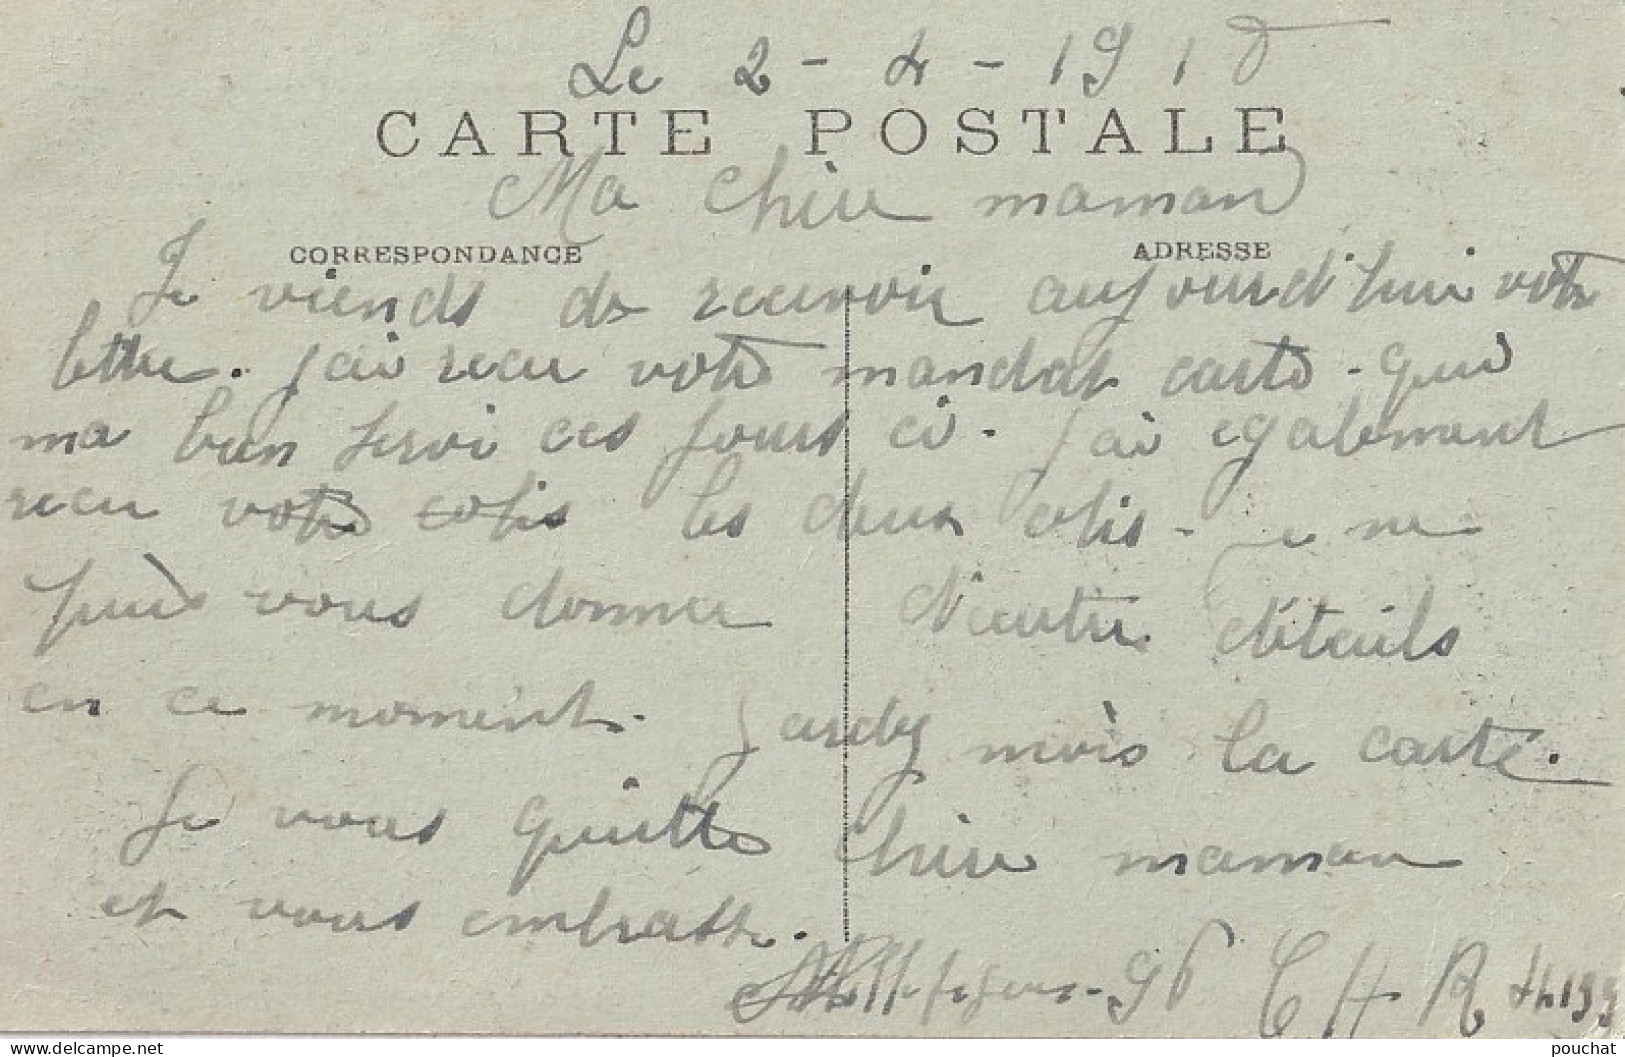 Le 2-4-1918
CARTE POSTALE
Ma Chère maman
CORRESPONDANCE ADRESSE
Je viends de recevoir aujourd'hui votre
lettre. j'ai recu votre mandat carte. qui
ma bien servi ces jours ci. j'ai egalement
recu votre colis les deux colis. je ne
puis vous donner d'autre déteuils
en ce moment. mois la carte.
Je vous quitte chère maman
et vous embrasse.